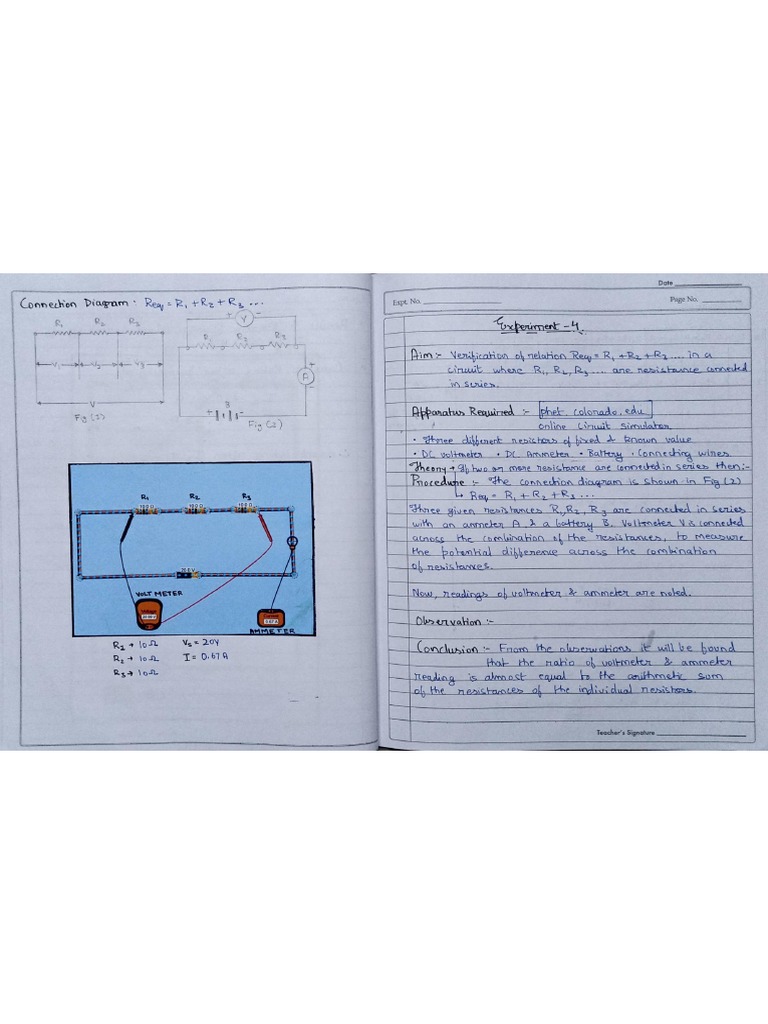 Connection Diagram : Req = R1 + R2 + R3 ...
R1 R2 R3
V1 V2 V3
V
Fig (1)
+ V -
R1 R2 R3
+
A
-
B
+ -
Fig (2)
R1 R2 R3
10.0 Ω 10.0 Ω 10.0 Ω
20.0 V
VOLT METER
Voltage
20.00 V
Current
0.67 A
AMMETER
R1 → 10Ω Vs = 20V
R2 → 10Ω I = 0.67A
R3 → 10Ω
Date
Expt. No. Page No.
Experiment - 4
Aim :- Verification of relation Req = R1 + R2 + R3 .... in a
circuit where R1, R2, R3 .... are resistance connected
in series.
Apparatus Required :- phet. colorado. edu
online circuit simulator
• Three different resistors of fixed & known value
• DC voltmeter • DC Ammeter • Battery • Connecting wires
Theory → If two or more resistance are connected in series then :-
Procedure :- The connection diagram is shown in Fig (2)
↳ Req = R1 + R2 + R3 ...
Three given resistances R1, R2, R3 are connected in series
with an ammeter A & a battery B. Voltmeter V is connected
across the combination of the resistances, to measure
the potential difference across the combination
of resistances.
Now, readings of voltmeter & ammeter are noted.
Observation :-
Conclusion :- From the observations it will be found
that the ratio of voltmeter & ammeter
reading is almost equal to the arithmetic sum
of the resistances of the individual resistors.
Teacher's Signature